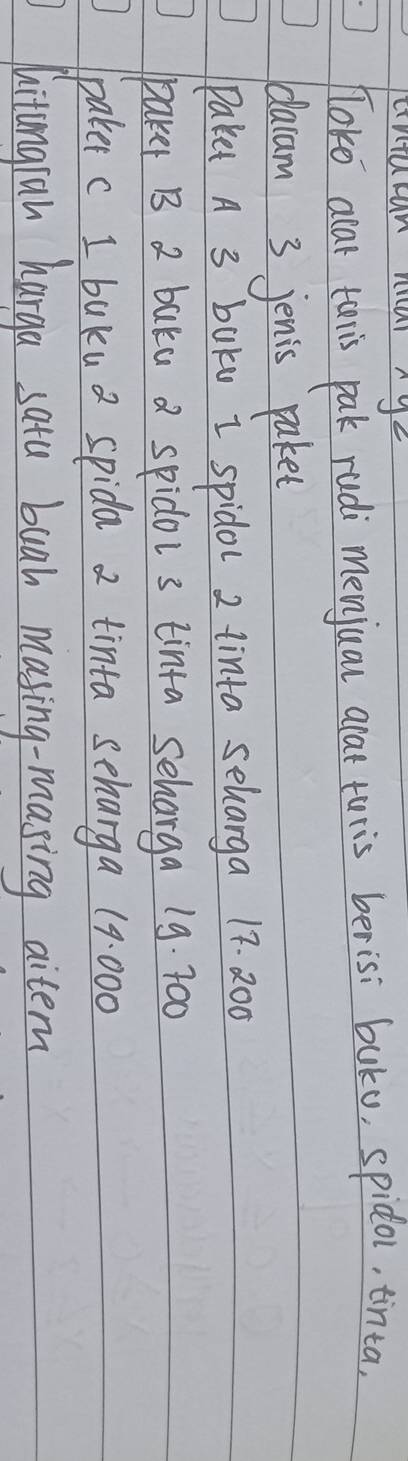 nilai x y z
Toko alat tulis pak rudi menjual alat tulis berisi buku, spidol, tinta,
dalam 3 jenis paket
Paket A 3 buku 1 spidol 2 tinta seharga 17.200
paket B 2 buku 2 spidol 3 tinta seharga 19.700
paket C 1 buku 2 spidol 2 tinta seharga 14.000
hitunglah harga satu buah masing-masing aitem